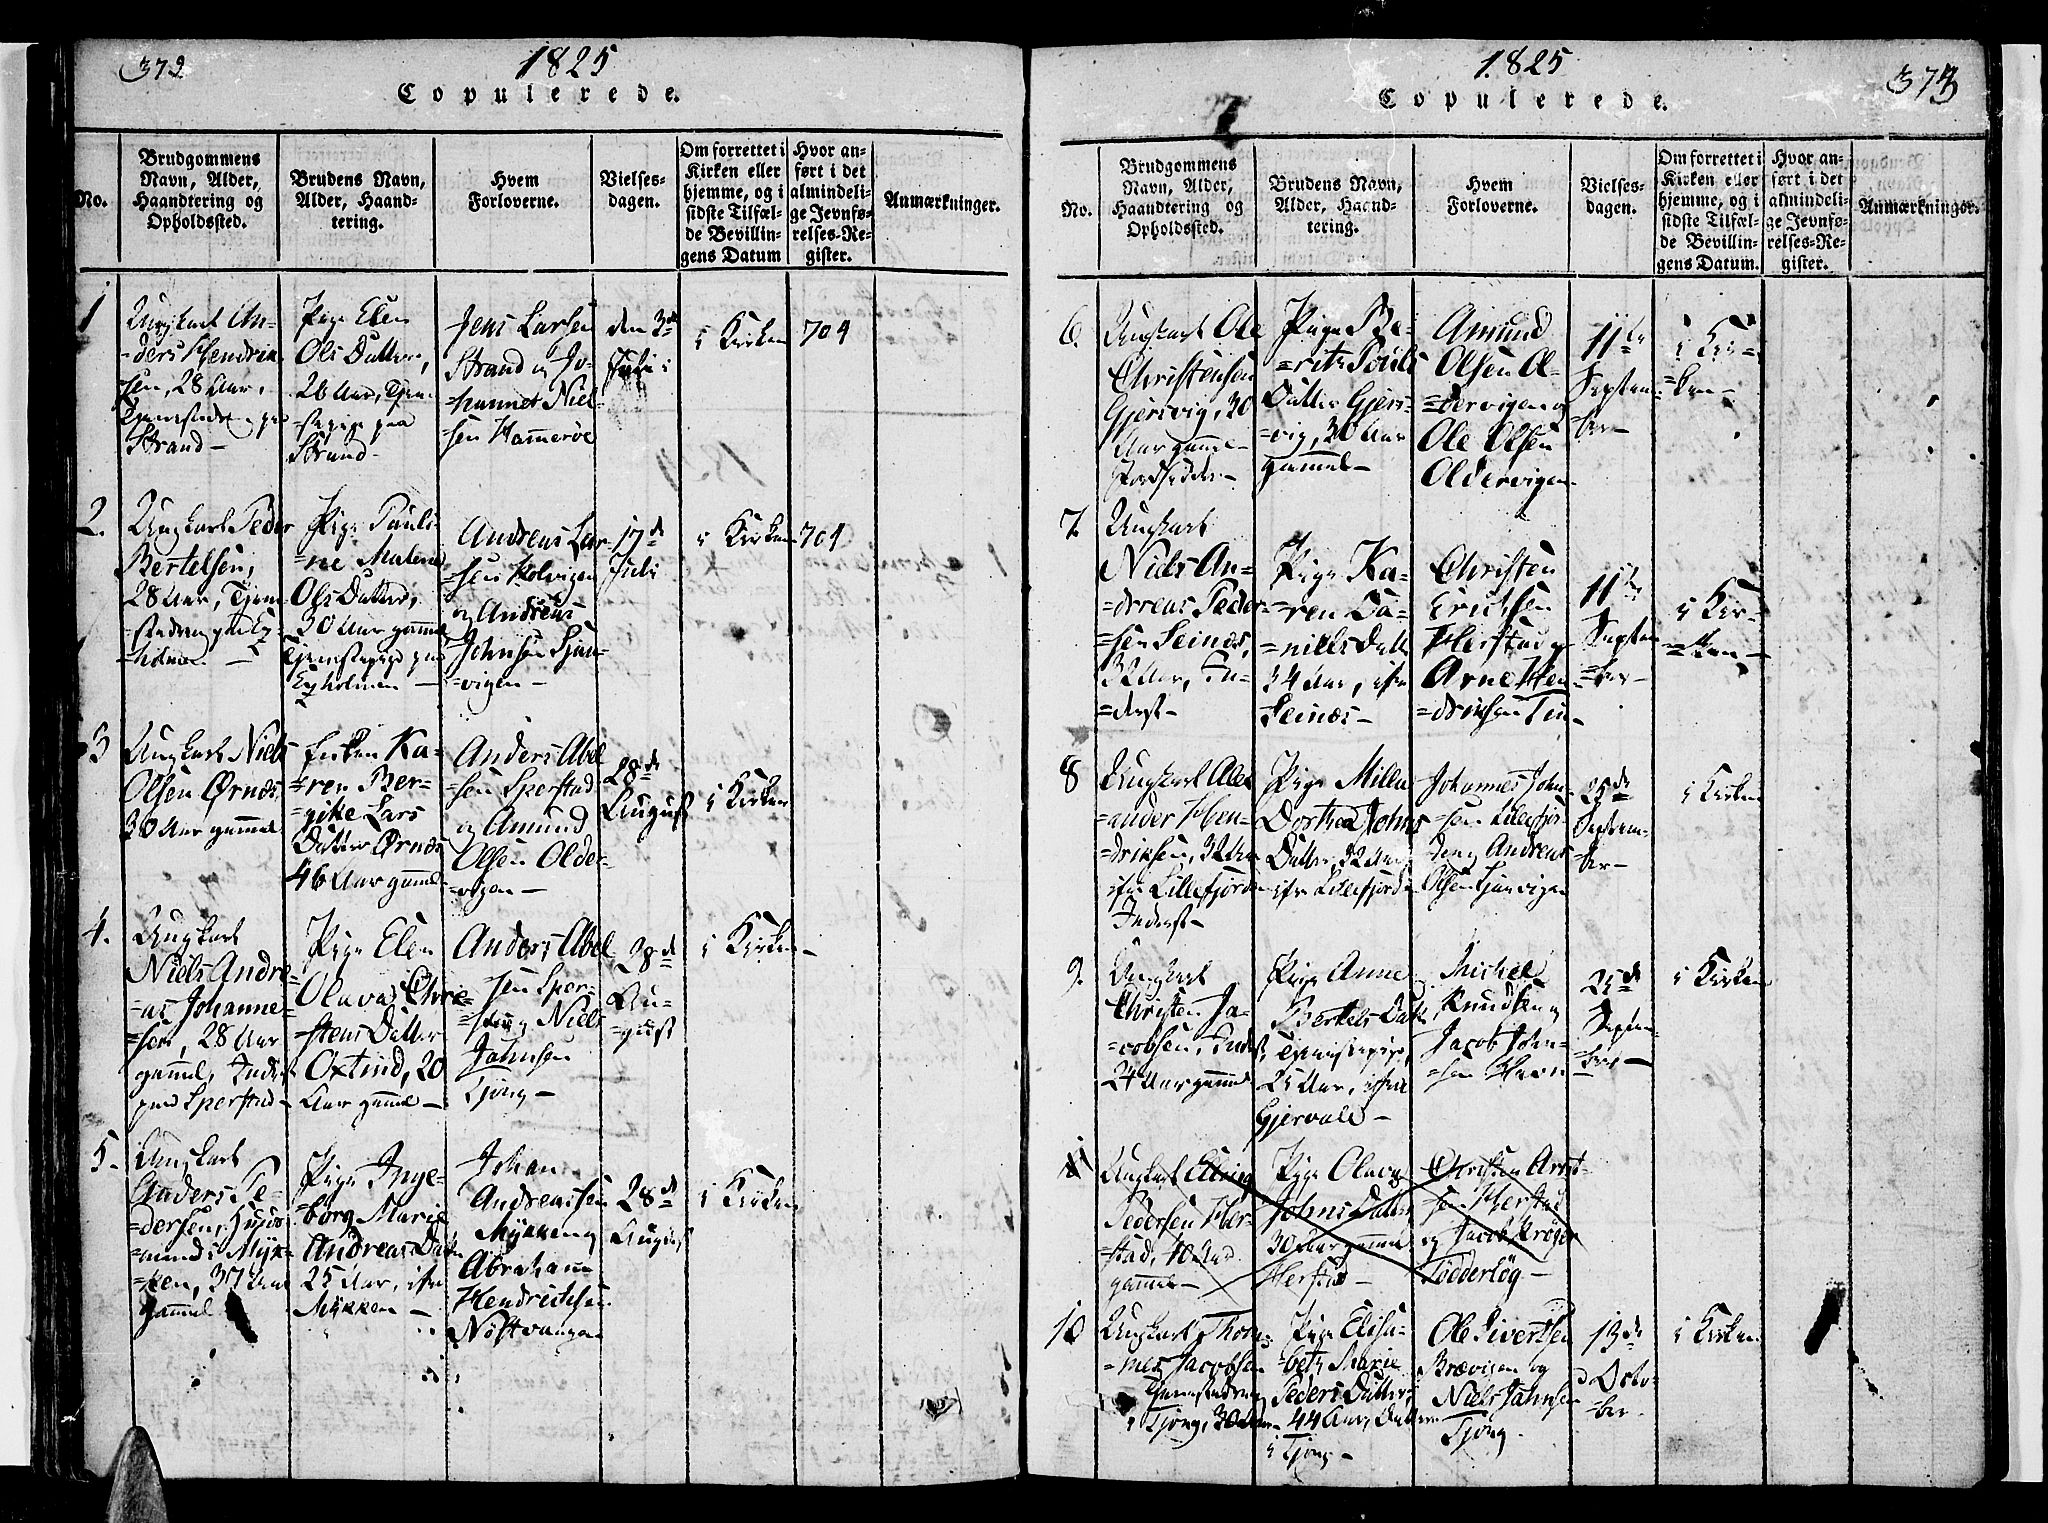 372
1825
Copulerede.
No.
Brudgommens
Navn, Alder,
Haandtering og
Opholdssted.
Brudens Navn,
Alder, Haand-
tering.
Hvem
Forloverne.
Vielses-
dagen.
Om forrettet i
Kirken eller
hjemme, og i
sidste Tilfæl-
de Bevillin-
gens Datum
Hvor an-
ført i det
almindeli-
ge Jevnfø-
relses-Re-
gister.
Anmærkninger.
1
Ungkarl An-
=ders Hendrik
sen, 28 Aar,
Tjenestedreng paa
Strand-
Pige Elen
Ols Datter,
26 Aar, Tjen-
=stepige paa
Strand
Jens Larsen
Strand og Jo-
hannes Niel-
sen Hammerøe
den 3die
Julii
i Kirken
704
2.
Ungkarl Peder
Bertelsen,
28 Aar, Tjene-
=stedreng paa Ey-
=holmen-
Pige Pauli-
ne Malena
Ols Datter,
30 Aar gammel
Tjenstepige paa
Eyholmen-
Andreas Lar-
sen Kolvigen
og Andreas
Johnsen Sjau-
=vigen-
17de
Juli
i Kirken
704
3
Ungkarl Niels
Olsen Ørnæs
30 Aar gammel
Enken Ka-
=ren Ber-
=gitte Lars
Datter Ørnæs
46 Aar gammel
Anders Abel
sen Sperstad
og Amund
Olsen Older-
=vigen-
28de
August
i Kirken
4.
Ungkarl
Niels Andre-
=as Johanne-
=sen, 28 Aar
gammel, Inderst
paa Sperstad-
Pige Elen
Olava Chri-
=stens Datter
Oxtind, 20
Aar gammel-
Anders Abel
sen Sper-
=stad og Niels
Jahnsen
Tjong-
28de
Au-
=gust
i Kirken-
5.
Ungkarl
Anders Pe-
=dersen, Huus-
=mand i Myk-
=ken, 37 Aar
gammel
Pige Inge-
borg Marie
Andreas Datter
25 Aar, ifra
Mykken-
Johan
Andreassen
Mykken og
Abraham
Hendrichsen
Nøstvangen
28de
August
i Kirken
1825
373
Copulerede.
No.
Brudgommens
Navn, Alder,
Haandtering og
Opholdssted.
Brudens Navn,
Alder, Haand-
tering.
Hvem
Forloverne.
Vielses-
dagen.
Om forrettet i
Kirken eller
hjemme, og i
sidste Tilfæl-
de Bevillin-
gens Datum.
Hvor an-
ført i det
almindeli-
ge Jevnfø-
relses-Re-
gister.
Anmærkninger.
6.
Ungkarl Ole
Christensen
Gjersvig, 30
Aar gammel
Pige Be-
=rith Pouls
Datter Gjers-
=vig, 30 Aar
gammel-
Amund
Olsen Ol-
=dervigen og
Ole Olsen
Oldervigen
11te
Septem-
ber-
i Kir-
=ken-
7.
Ungkarl
Niels An-
=dreas Peder-
=sen Seinæs,
32 Aar, In-
=derst-
Pige Ka-
=ren Da-
=niels Datter
34 Aar, ifra
Seinæs-
Christen
Erichsen
Herstad og
Arne Hen-
=driksen
11te
Septem-
=ber-
i Kir-
=ken-
8
Ungkarl Alex
=ander Hen-
=driksen, 32 Aar
ifra Lillefjorden
Inderst-
Pige Milla
Dorthea Johns
Datter, 32 Aar
ifra Lillefjorden
Johannes John-
=sen Lillefjor-
den og Andreas
Olsen Sjauvigen
25de
Septem-
=ber-
i Kirken
9.
Ungkarl
Christen Ja-
=cobsen, Inderst
24 Aar gammel
Pige Anne
Bertels Datter
Tjenistepige,
25 Aar, ifra
Gjervale-
Michel
Knudsen og
Jacob John-
=sen Havn
25de
Septem-
=ber-
i Kirken
Ungkarl Elling
Pedersen Her-
=stad, 40 Aar
gammel-
Pige Olava
Johns Datter
30 Aar gammel
Herstad-
Christen Arnt-
sen Herstad
og Jacob Krøger
Tødderløg-
10
Ungkarl Thom-
=mes Jacobsen
Tjenestedreng
i Tjong, 30 Aar-
Pige Elisa-
=beth Marie
Peders Datter,
44 Aar, Datter
i Tjong-
Ole Sivertsen
Brævigen og
Niels Jahnsen
Tjong.
13de
Octo-
=ber
i Kirken